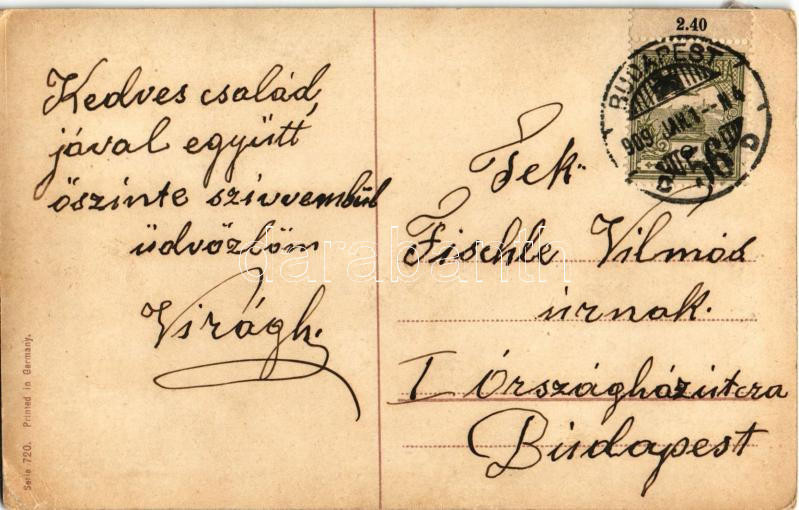 Kedves család,
jával együtt
őszinte szivvemből
üdvözlöm
Virágh.
2.40
BUDAPEST
909 JAN. 1
56
D D
Tek.
Fischle Vilmos
úrnak.
I Országházútcza
Budapest
Serie 720. Printed in Germany.
darabanth